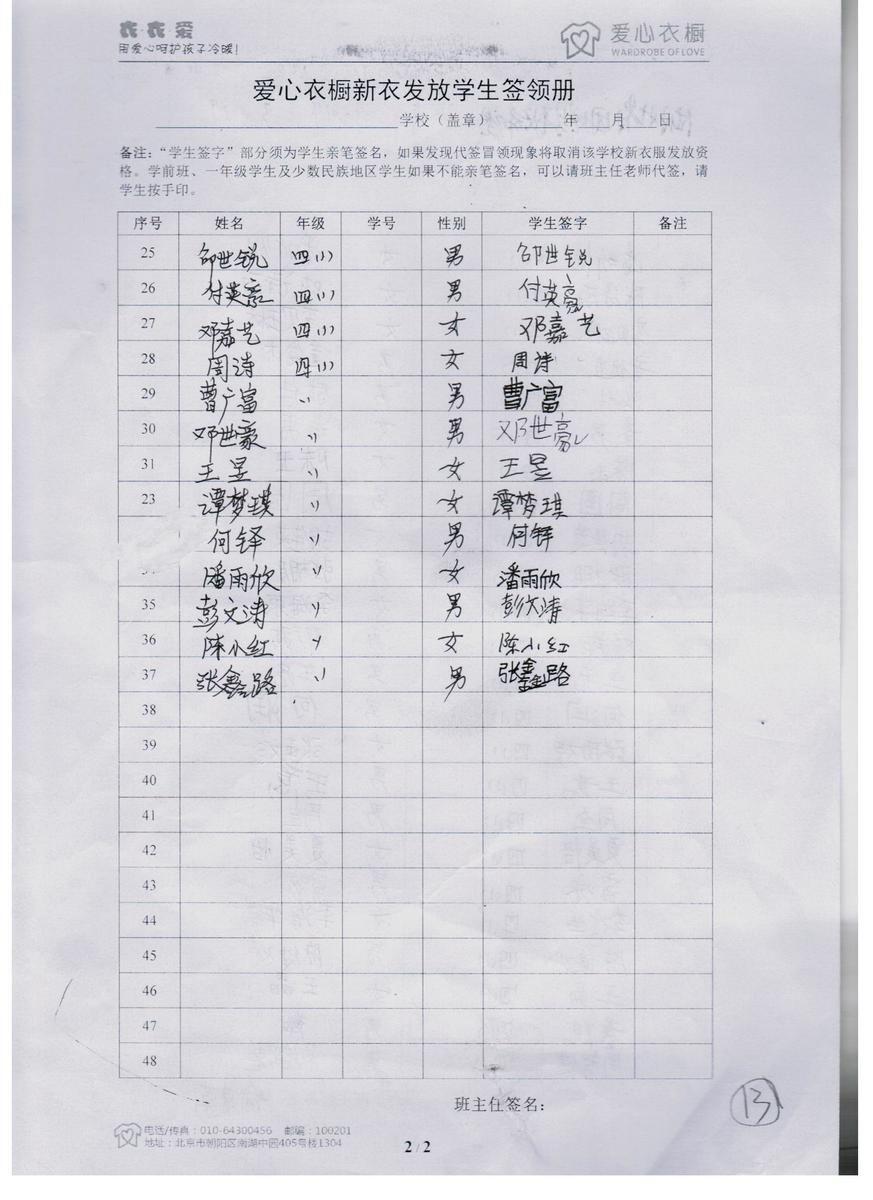 衣·衣·爱
用爱心呵护孩子冷暖！
爱心衣橱
WARDROBE OF LOVE
爱心衣橱新衣发放学生签领册
学校（盖章） 年 月 日
备注：“学生签字”部分须为学生亲笔签名，如果发现代签冒领现象将取消该学校新衣服发放资
格。学前班、一年级学生及少数民族地区学生如果不能亲笔签名，可以请班主任老师代签，请
学生按手印。
序号 姓名 年级 学号 性别 学生签字 备注
25 邵世锐 四(1) 男 邵世锐
26 付英豪 四(1) 男 付英豪
27 邓嘉艺 四(1) 女 邓嘉艺
28 周诗 四(1) 女 周诗
29 曹广富 〃 男 曹广富
30 邓世豪 〃 男 邓世豪
31 王昱 〃 女 王昱
23 谭梦琪 〃 女 谭梦琪
何铎 〃 男 何铎
潘雨欣 〃 女 潘雨欣
35 彭文涛 〃 男 彭文涛
36 陈小红 〃 女 陈小红
37 张鑫路 〃 男 张鑫路
38
39
40
41
42
43
44
45
46
47
48
班主任签名：
13
电话/传真：010-64300456 邮编：100201
地址：北京市朝阳区南湖中园405号楼1304
2 / 2